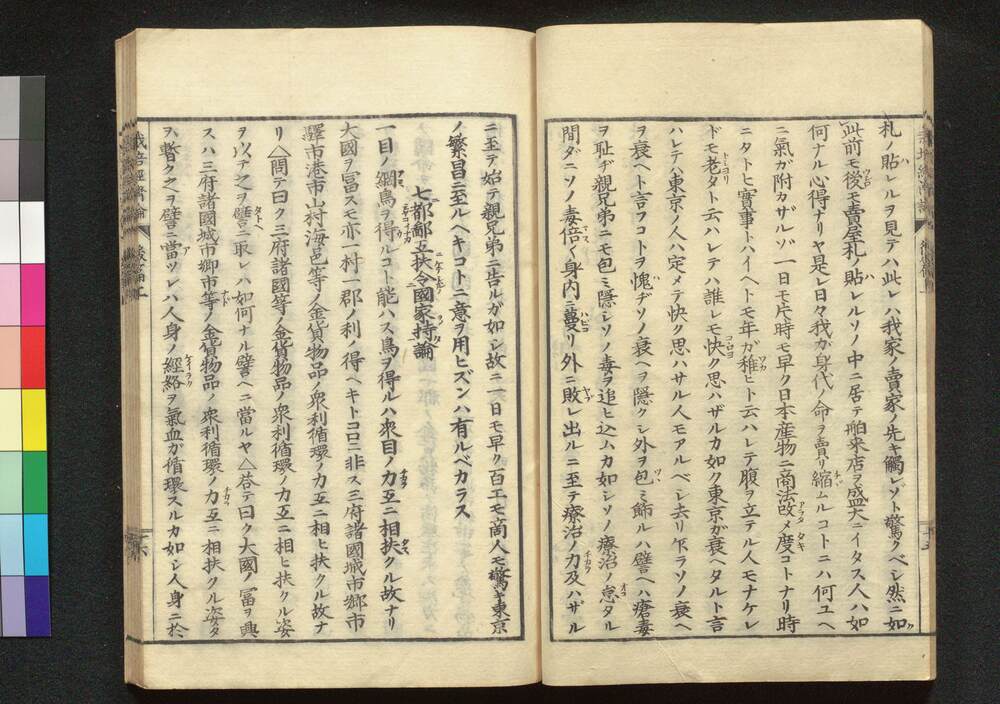 札ノ貼レルヲ見テハ此レハ我家ノ賣家ノ先キ觸レゾト驚クベシ然ニ如
此前モ後モ賣屋札ノ貼レルソノ中ニ居テ舶来店ヲ盛大ニイタス人ハ如
何ナル心得ナリヤ是レ日々我ガ身代ノ命ヲ賣リ縮ムルコトニハ何ユヘ
ニ氣ガ附カザルゾ一日モ片時モ早ク日本産物ニ商法改メ度コトナリ時
ニタトヒ實事トハイヘトモ年ガ稚ヒト云ハレテ腹ヲ立テル人モナケレ
ドモ老タト云ハレテハ誰レモ快ク思ハザルカ如ク東京ガ衰ヘタルト言
ハレテハ東京ノ人ハ定メテ快ク思ハサル人モアルベシ去リ乍ラソノ衰ヘ
ヲ衰ヘト言フコトヲ愧ヂソノ衰ヘヲ隠クシ外ヲ包ミ飾ルハ譬ヘハ瘡毒
ヲ耻ヂ親兄弟ニモ包ミ隠シソノ毒ヲ追ヒ込ムカ如シソノ療治ノ怠タル
間ダニソノ毒倍々身内ニ蔓リ外ニ敗レ出ルニ至テ療治ノ力及ハザル
ニ至テ始テ親兄弟ニ告ルガ如シ故ニ一日モ早ク百工モ商人モ驚キ東京
ノ繁昌ニ至ルヘキコトニ意ヲ用ヒズンハ有ルベカラス
七都鄙互扶令國家持論
一目ノ網鳥ヲ得ルコト能ハス鳥ヲ得ルハ衆目ノ力互ニ相扶クル故ナリ
大國ヲ富スモ亦一村一郡ノ利ノ得ヘキトコロニ非ス三府諸國城市郷市
驛市港市山村海邑等ノ金貨物品ノ衆利循環ノ力互ニ相ヒ扶クル故ナ
リ△問テ曰ク三府諸國等ノ金貨物品ノ衆利循環ノ力互ニ相ヒ扶クル姿
ヲ以テ之ヲ譬ニ取レハ如何ナル譬ヘニ當ルヤ△荅テ曰ク大國ノ冨ヲ興
スハ三府諸國城市郷市等ノ金貨物品ノ衆利循環ノ力互ニ相扶クル姿タ
ヲ暫ク之ヲ譬ニ當ツレハ人身ノ經絡ヲ氣血ガ循環スルカ如シ人身ニ於